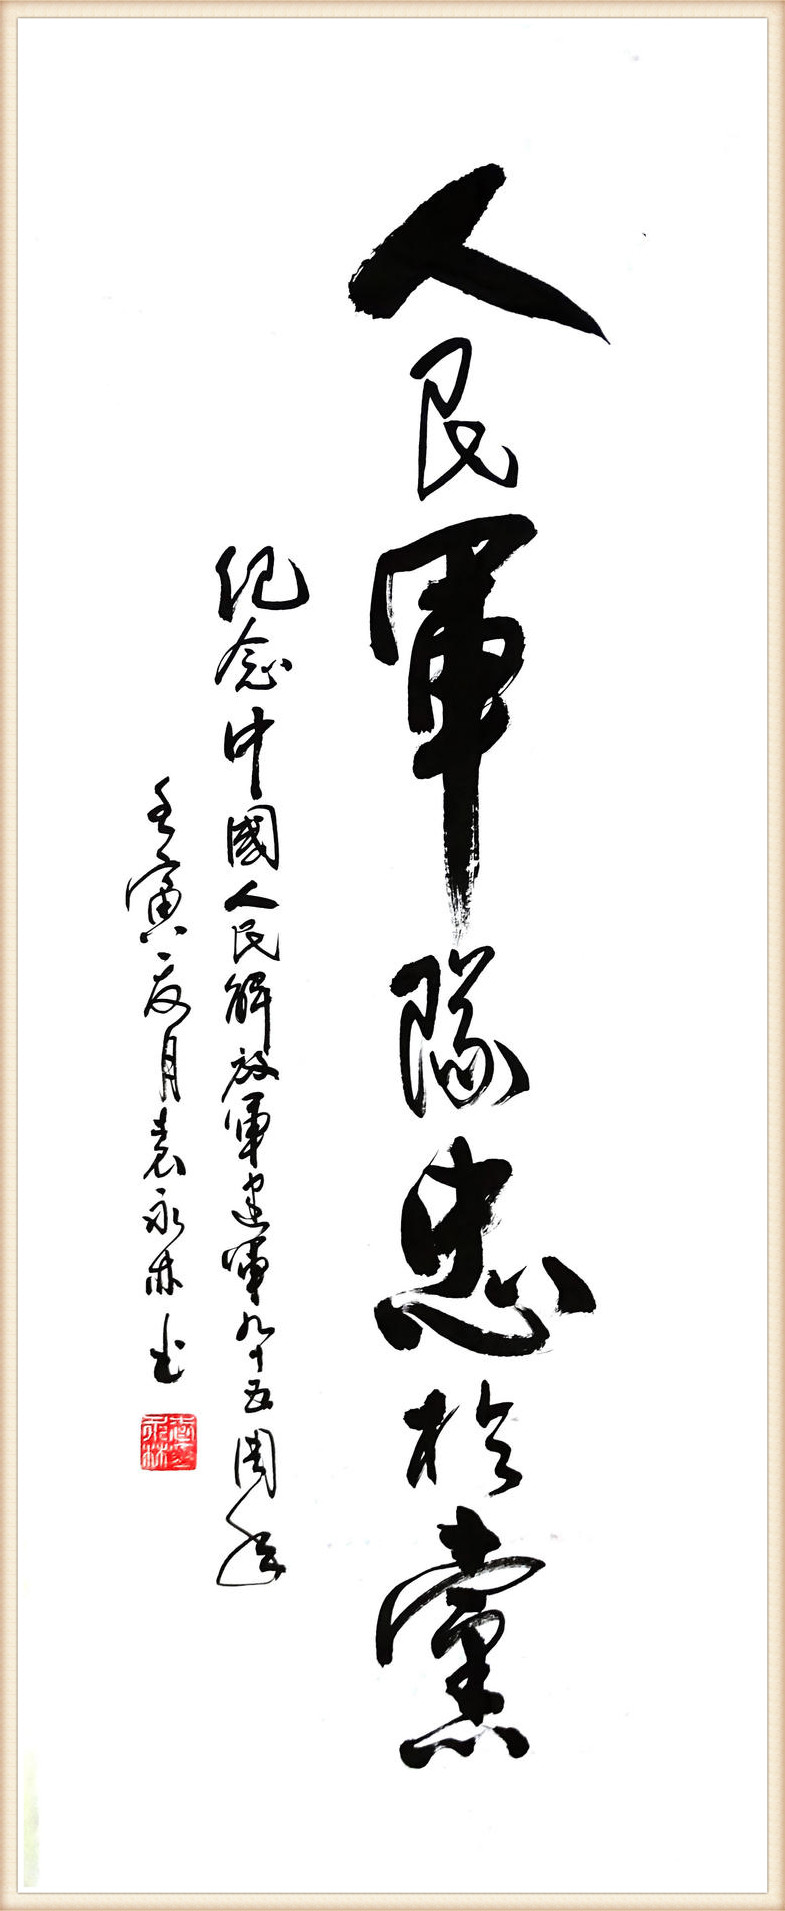 人民軍隊忠於黨
纪念中國人民解放軍建軍九十五周年
壬寅夏月袁永林书